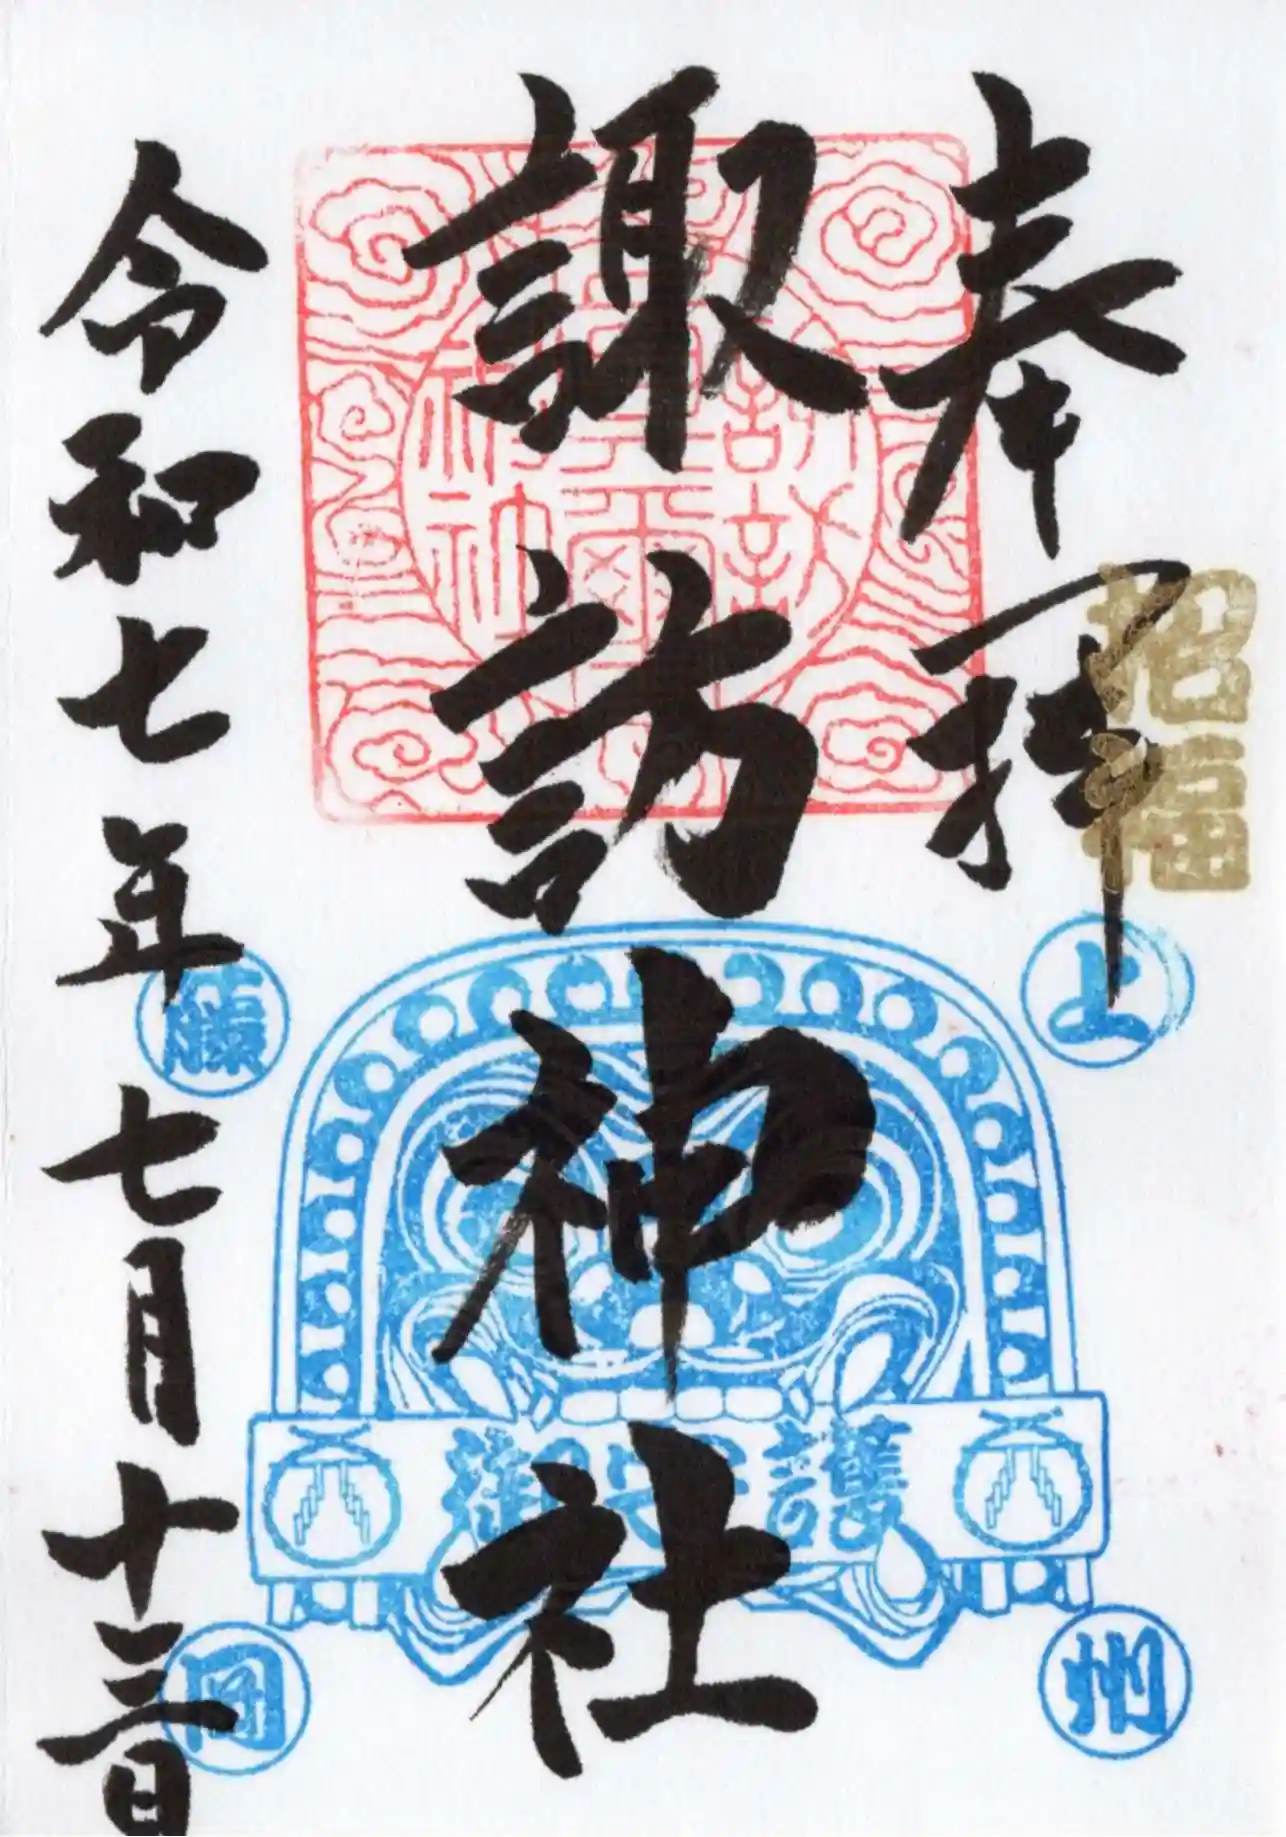 奉拝
招福
諏訪神社
上州
藤岡
護
令和七年七月十三日